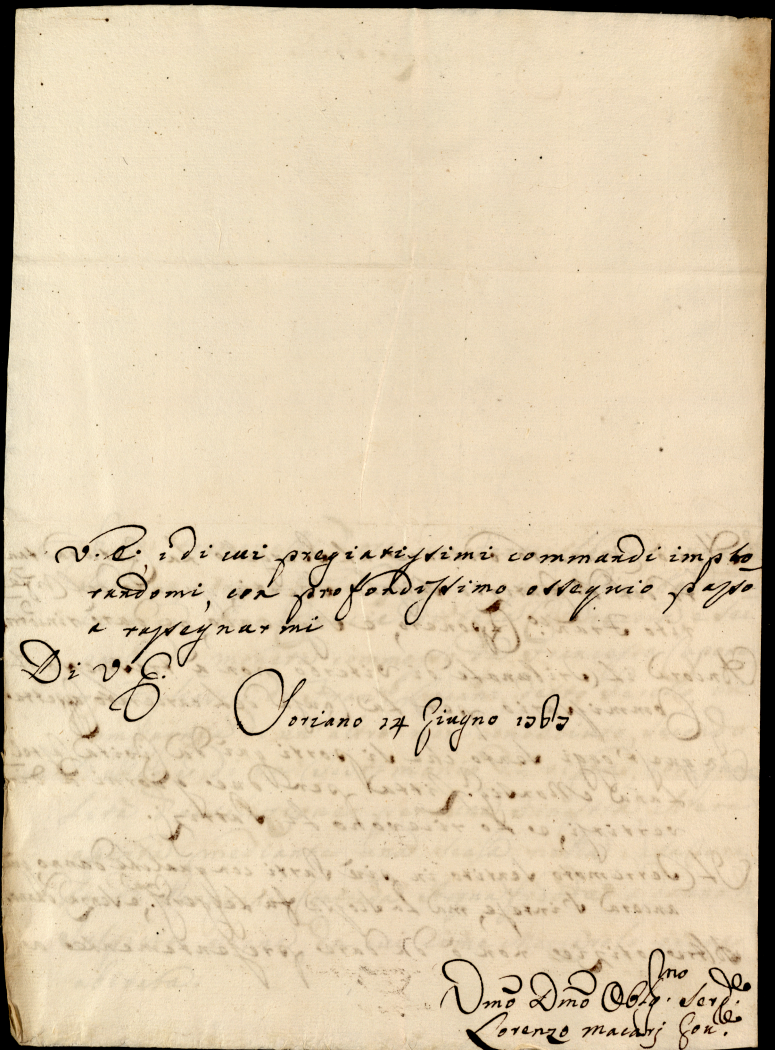 V. E., i di cui pregiatissimi commandi implo
randomi, con profondissimo ossequio passo
a rassegnarmi
Di V. E.
Soriano 14 Giugno 1767
Umo Dmo Obbgmo Serre
Lorenzo Macarj Gov.re